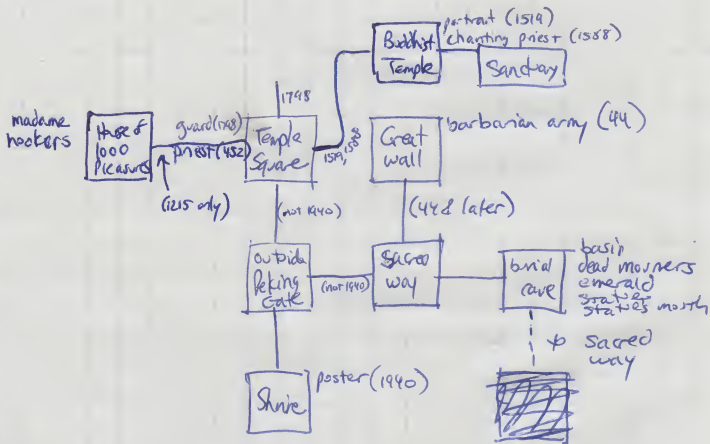 portrait (1519)
chanting priest (1588)
Buddhist
Temple
Sanctuary
1798
madame
hookers
House of
1000
Pleasures
guard (1798)
priest (452)
(1215 only)
Temple
Square
1519, 1588
Great
wall
barbarian army (44)
(not 1940)
(44 & later)
outside
Peking
Gate
(not 1940)
Sacred
way
burial
cave
basin
dead mourners
emerald
statues
statues mouth
Sacred
way
Shrine
poster (1940)